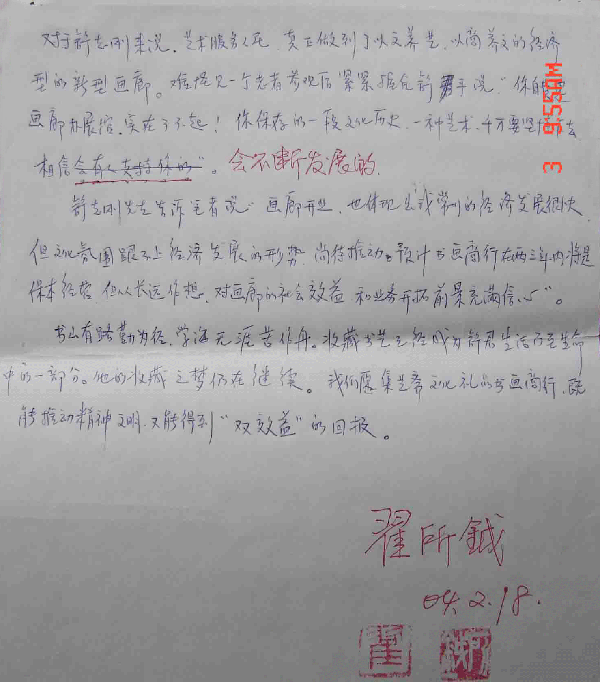 对于舒志刚来说，艺术服务人民，真正做到了以文养艺，以商养文的经济
型的新型画廊。难怪见一个老者参观后紧紧握住舒手说"你的
画廊办展馆，实在了不起！你保存的一段文化历史，一种艺术，千万要坚持
相信会有人支持你的"。会不断发展的。
舒志刚先生告诉笔者说"画廊开业，也体现出我荣州的经济发展很快，
但文化氛围跟不上经济发展的形势，尚待推动。预计书画商行在两三年内将是
保本经营，但从长远作想，对画廊的社会效益和业务开拓前景充满信心"。
书山有路勤为径，学海无涯苦作舟。收藏书艺已经成为舒君生活乃至生命
中的一部分。他的收藏之梦仍在继续。我们愿集艺斋文化礼品书画商行，既
能推动精神文明，又能得到"双效益"的回报。
翟所钺
04.2.18.
3 9:55AM